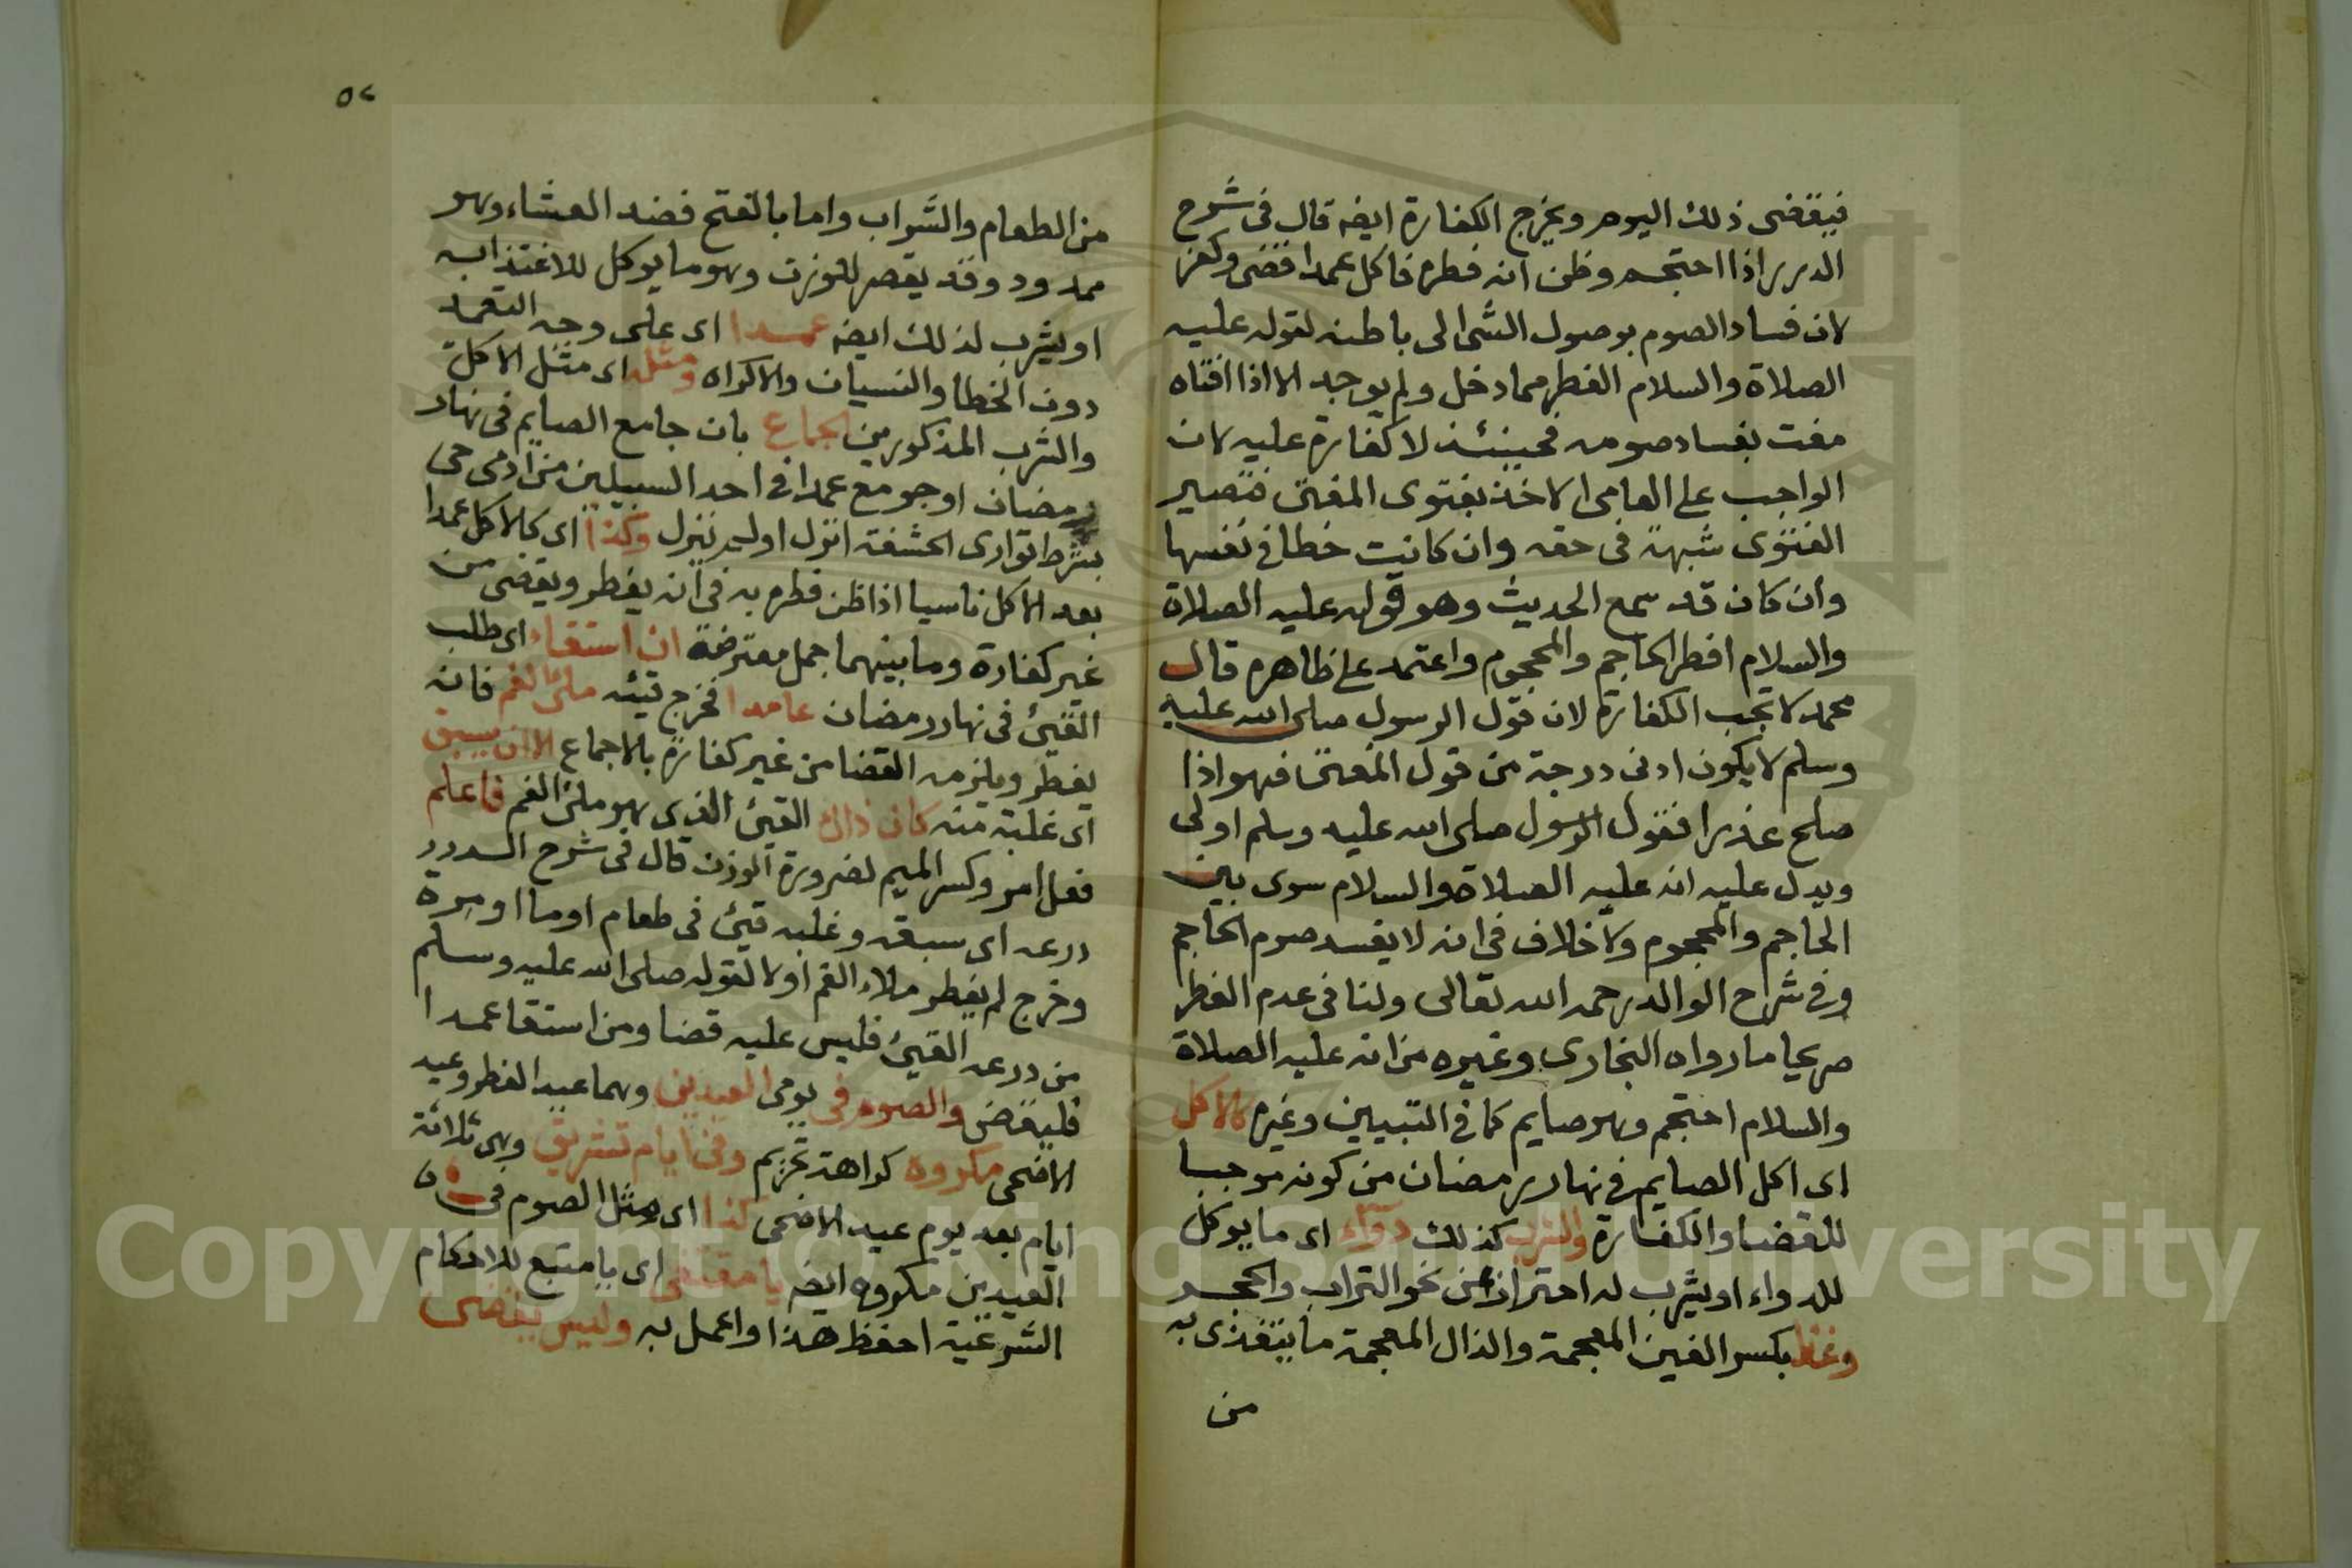 فيقضى ذلك اليوم ويخرج الكفارة ايضه قال فى شرح
الدرر اذا احتجم وظن انه فطره فاكل عمدا قضى وكفر
لان فساد الصوم بوصول الشى الى باطنه لقوله عليه
الصلاة والسلام الفطر مما دخل ولم يوجد الا اذا افتاه
مفت بفساد صومه فحينئذ لا كفارة عليه لان
الواجب على العامى الاخذ بفتوى المفتى فتصير
الفتوى شبهة فى حقه وان كانت خطا فى نفسها
وان كان قد سمع الحديث وهو قوله عليه الصلاة
والسلام افطر الحاجم والمحجوم واعتمد على ظاهره قال
محمد لا تجب الكفارة لان قول الرسول صلى الله عليه
وسلم لا يكون ادنى درجة من قول المفتى فهو اذا
صلح عذرا فقول الرسول صلى الله عليه وسلم اولى
ويدل عليه انه عليه الصلاة والسلام سوى بين
الحاجم والمحجوم ولا خلاف فى انه لا يفسد صوم الحاجم
وفى شرح الوالد رحمه الله تعالى ولنا فى عدم الفطر
صريحا ما رواه البخارى وغيره من انه عليه الصلاة
والسلام احتجم وهو صايم كما فى التبيين وغيره كالاكل
اى اكل الصايم فى نهار رمضان من كونه موجبا
للقضا والكفارة والشرب كذلك دواء اى ما يوكل
للدواء او يشرب له احترازا عن نحو التراب والحجر
وغذا بكسر الغين المعجمة والذال المعجمة ما يتغذى به
من
٥٢
من الطعام والشراب واما بالفتح فضد العشاء وهو
ممدود وقد يقصر للوزن وهو ما يوكل للاغتذا به
او يشرب لذلك ايضه عمدا اى على وجه التعمد
دون الخطا والنسيان والاكراه ومثله اى مثل الاكل
والشرب المذكورين الجماع بان جامع الصايم فى نهار
رمضان او جومع عمدا فى احد السبيلين من ادمى حى
بشرط توارى الحشفة انزل اولم ينزل وكذا اى كالاكل عمدا
بعد الاكل ناسيا اذا ظن فطره به فى انه يفطر ويقضى من
غير كفارة وما بينهما جمل معترضة ان استقاء اى طلب
القيئ فى نهار رمضان عامدا فخرج قيئه ملئ الفم فانه
يفطر ويلزمه القضا من غير كفارة بالاجماع الا ان يسبق
اى غلبة منه كان ذاك القيئ الذى هو ملئ الفم فاعلم
فعل امر وكسر الميم لضرورة الوزن قال فى شرح الدرر
ذرعه اى سبقه وغلبه قيئ فى طعام او ما او مرة
وخرج لم يفطر ملاء الفم او لا لقوله صلى الله عليه وسلم
من ذرعه القيئ فليس عليه قضا ومن استقا عمدا
فليقض والصوم فى يومى العيدين وهما عيد الفطر وعيد
الاضحى مكروه كراهة تحريم وفى ايام تشريق وهى ثلاثة
ايام بعد يوم عيد الاضحى كذا اى مثل الصوم فى
العيدين مكروه ايضه يا مقتفى اى يا متبع للاحكام
الشرعية احفظ هذا واعمل به وليس يقضى
Copyright © King Saud University